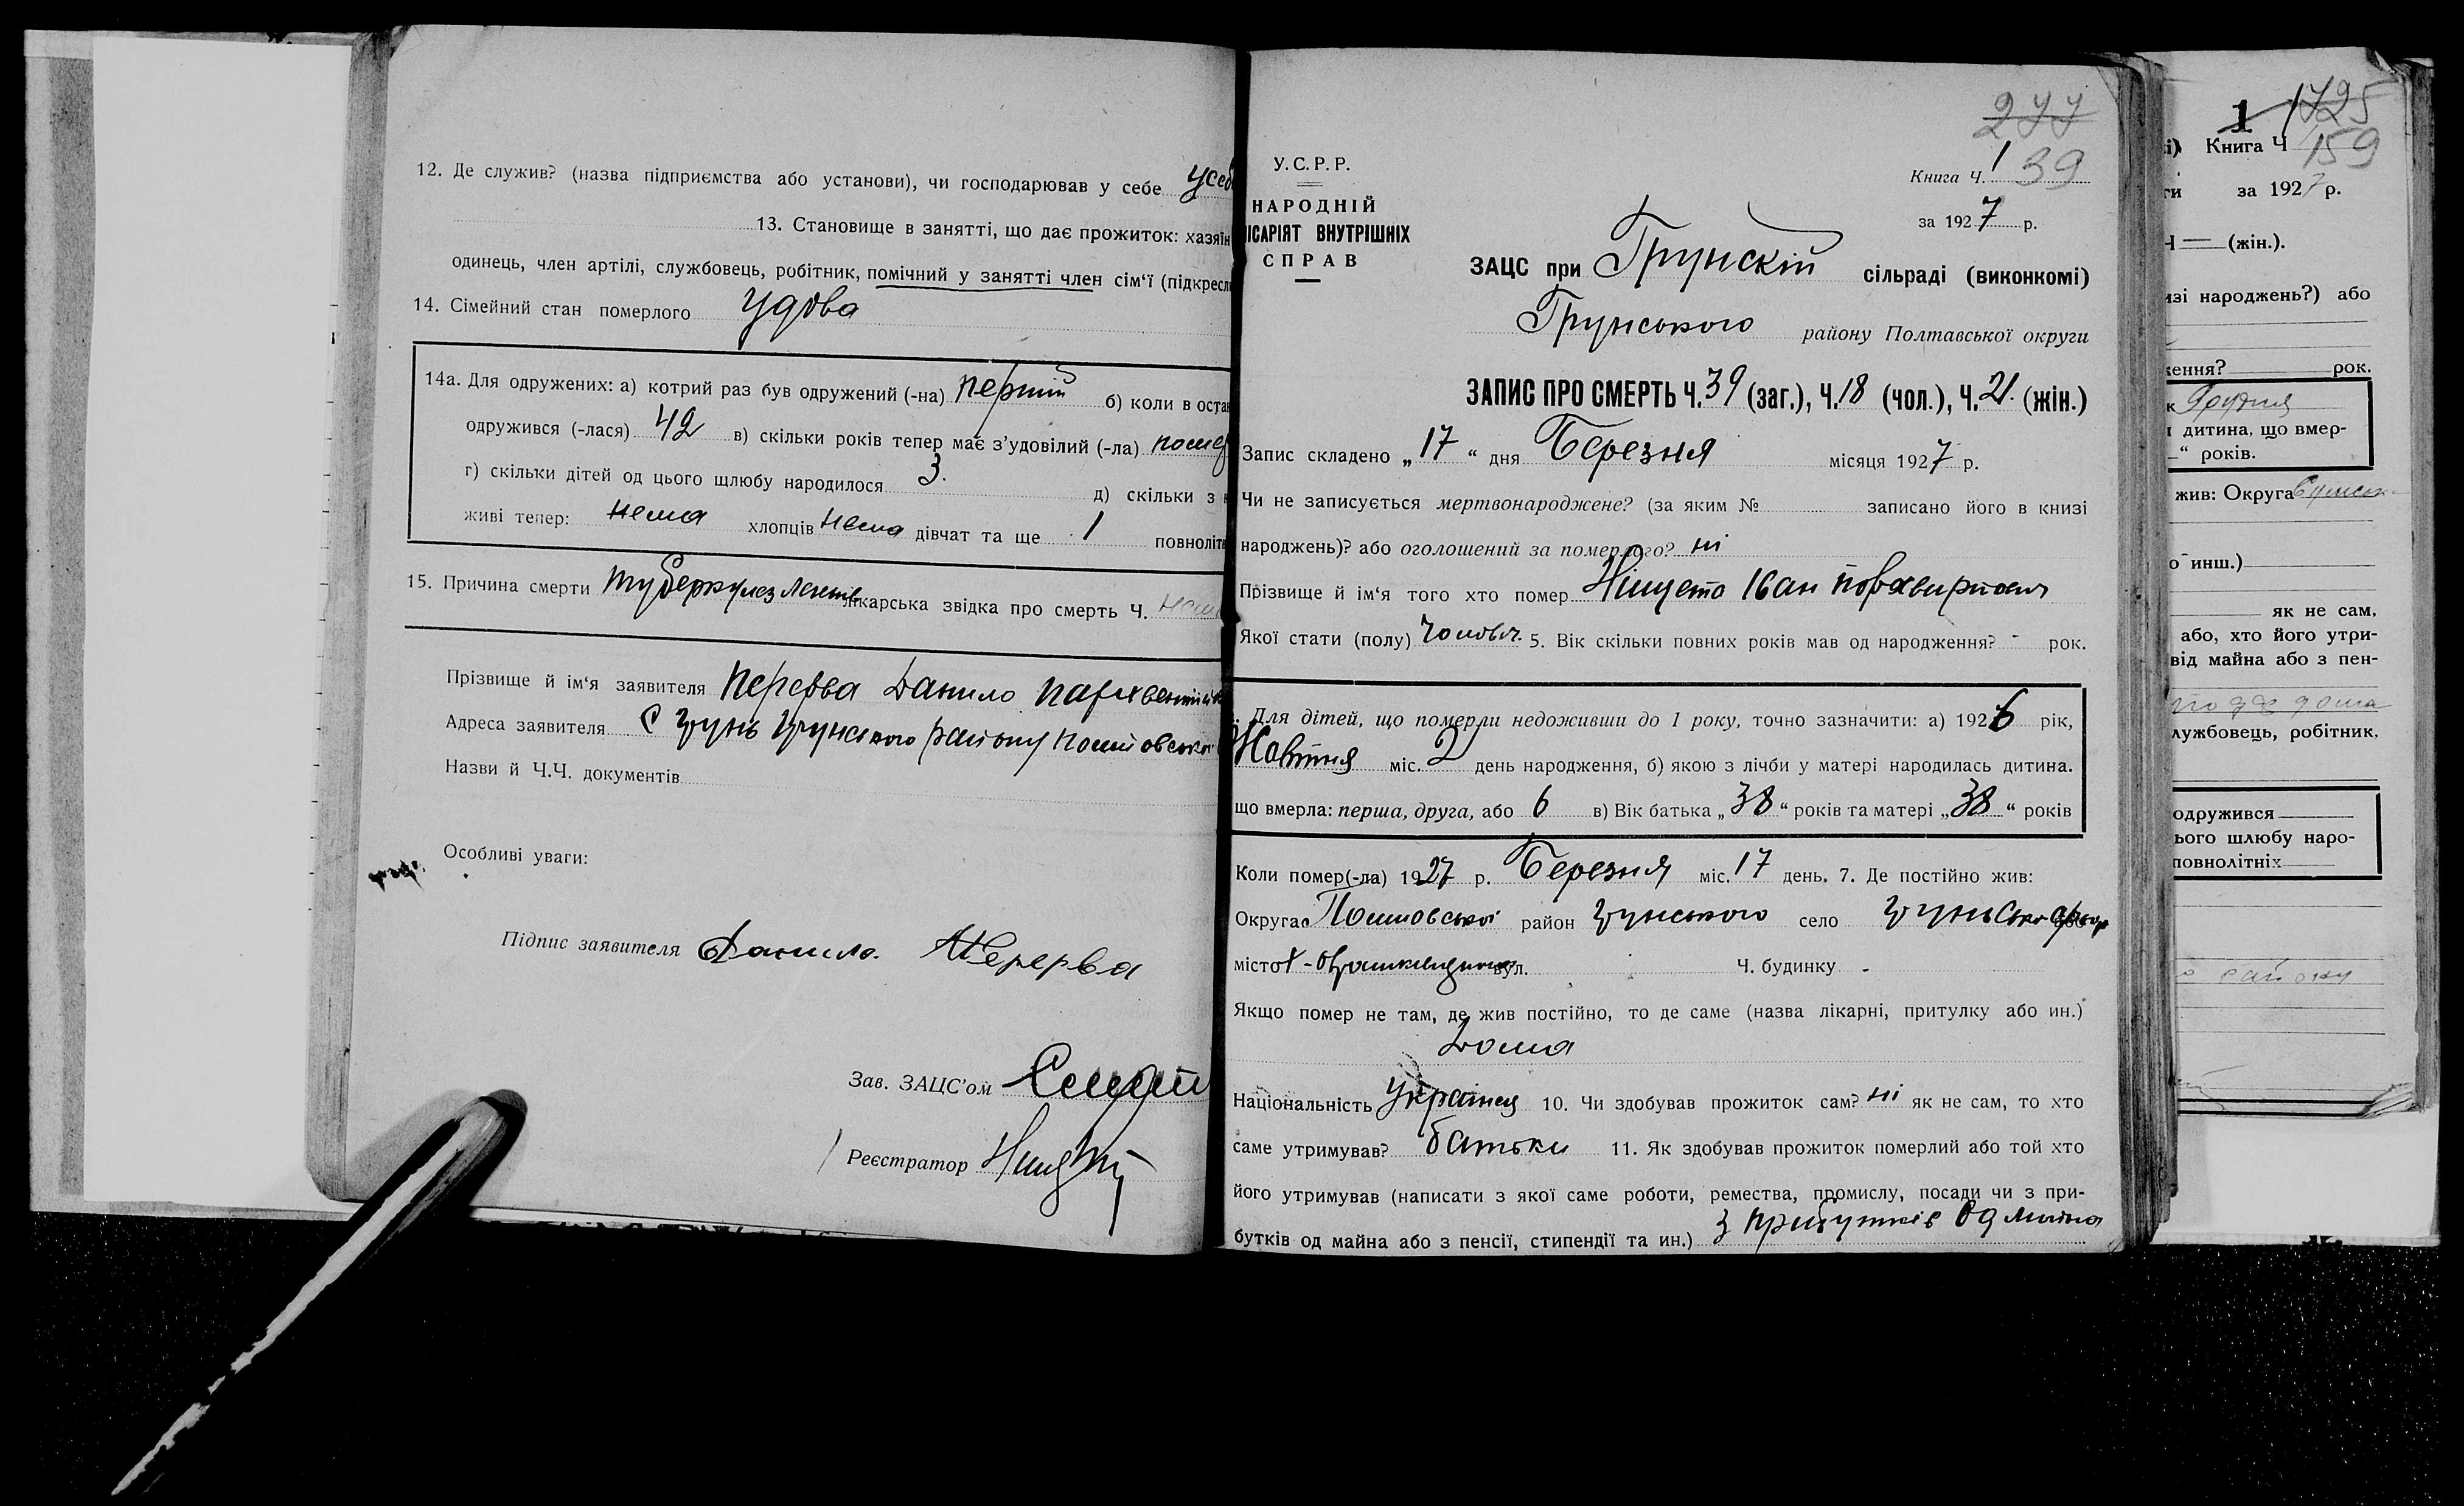 12. Де служив? (назва підприємства або установи), чи господарював у себе усеб
13. Становище в занятті, що дає прожиток: хазяїн
одинець, член артілі, службовець, робітник, помічний у занятті член сім‘ї (підкресл
14. Сімейний стан померлого удова
14а. Для одружених: а) котрий раз був одружений (-на) перший б) коли в остан
одружився (-лася) 42 в) скільки років тепер має з’удовілий (-ла)
г) скільки дітей од цього шлюбу народилося 3. д) скільки з
живі тепер: нема хлопців нема дівчат та ще 1 повноліт
15. Причина смерти туберкулез лікарська звідка про смерть Ч.
Прізвище й ім‘я заявителя Перерва Данило
Адреса заявителя с Грунь Грунського району
Назви й Ч.Ч. документів
Особливі уваги:
Підпис заявителя Данило Перерва
Зав. ЗАЦС’ом
Реєстратор
277
У.С.Р.Р.
Книга Ч. 1 39
НАРОДНІЙ
ІСАРІЯТ ВНУТРІШНІХ
СПРАВ
за 1927 р.
ЗАЦС при Грунскій сільраді (виконкомі)
Грунського району Полтавської округи
ЗАПИС ПРО СМЕРТЬ Ч. 39 (заг.), Ч. 18 (чол.), Ч. 21. (жін.)
Запис складено „17“ дня Березня місяця 1927 р.
Чи не записується мертвонароджене? (за яким № записано його в книзі
народжень)? або оголошений за померлого? ні
Прізвище й ім‘я того хто помер Нищета Іван
Якої стати (полу) 5. Вік скільки повних років мав од народження? - рок.
Для дітей, що померли недоживши до 1 року, точно зазначити: а) 1926 рік,
Жовтня міс. 2 день народження, б) якою з лічби у матері народилась дитина.
що вмерла: перша, друга, або 6 в) Вік батька „38“ років та матері „38“ років
Коли помер(-ла) 1927 р. Березня міс. 17 день. 7. Де постійно жив:
Округа Полтовської район Грунського село
місто вул. Ч. будинку -
Якщо помер не там, де жив постійно, то де саме (назва лікарні, притулку або ин.)
Дома
Національність 10. Чи здобував прожиток сам? ні як не сам, то хто
саме утримував? батьки 11. Як здобував прожиток померлий або той хто
його утримував (написати з якої саме роботи, ремества, промислу, посади чи з при-
бутків од майна або з пенсії, стипендії та ин.) з прибутків од майна
1 1725
Книга Ч 159
за 1927 р.
Ч — (жін.).
изі народжень?) або
ження? рок.
Грудня
дитина, що вмер-
“ років.
жив: Округа
о инш.)
як не сам,
або, хто його утри-
від майна або з пен-
лужбовець, робітник,
одружився
ього шлюбу наро-
повнолітніх
району